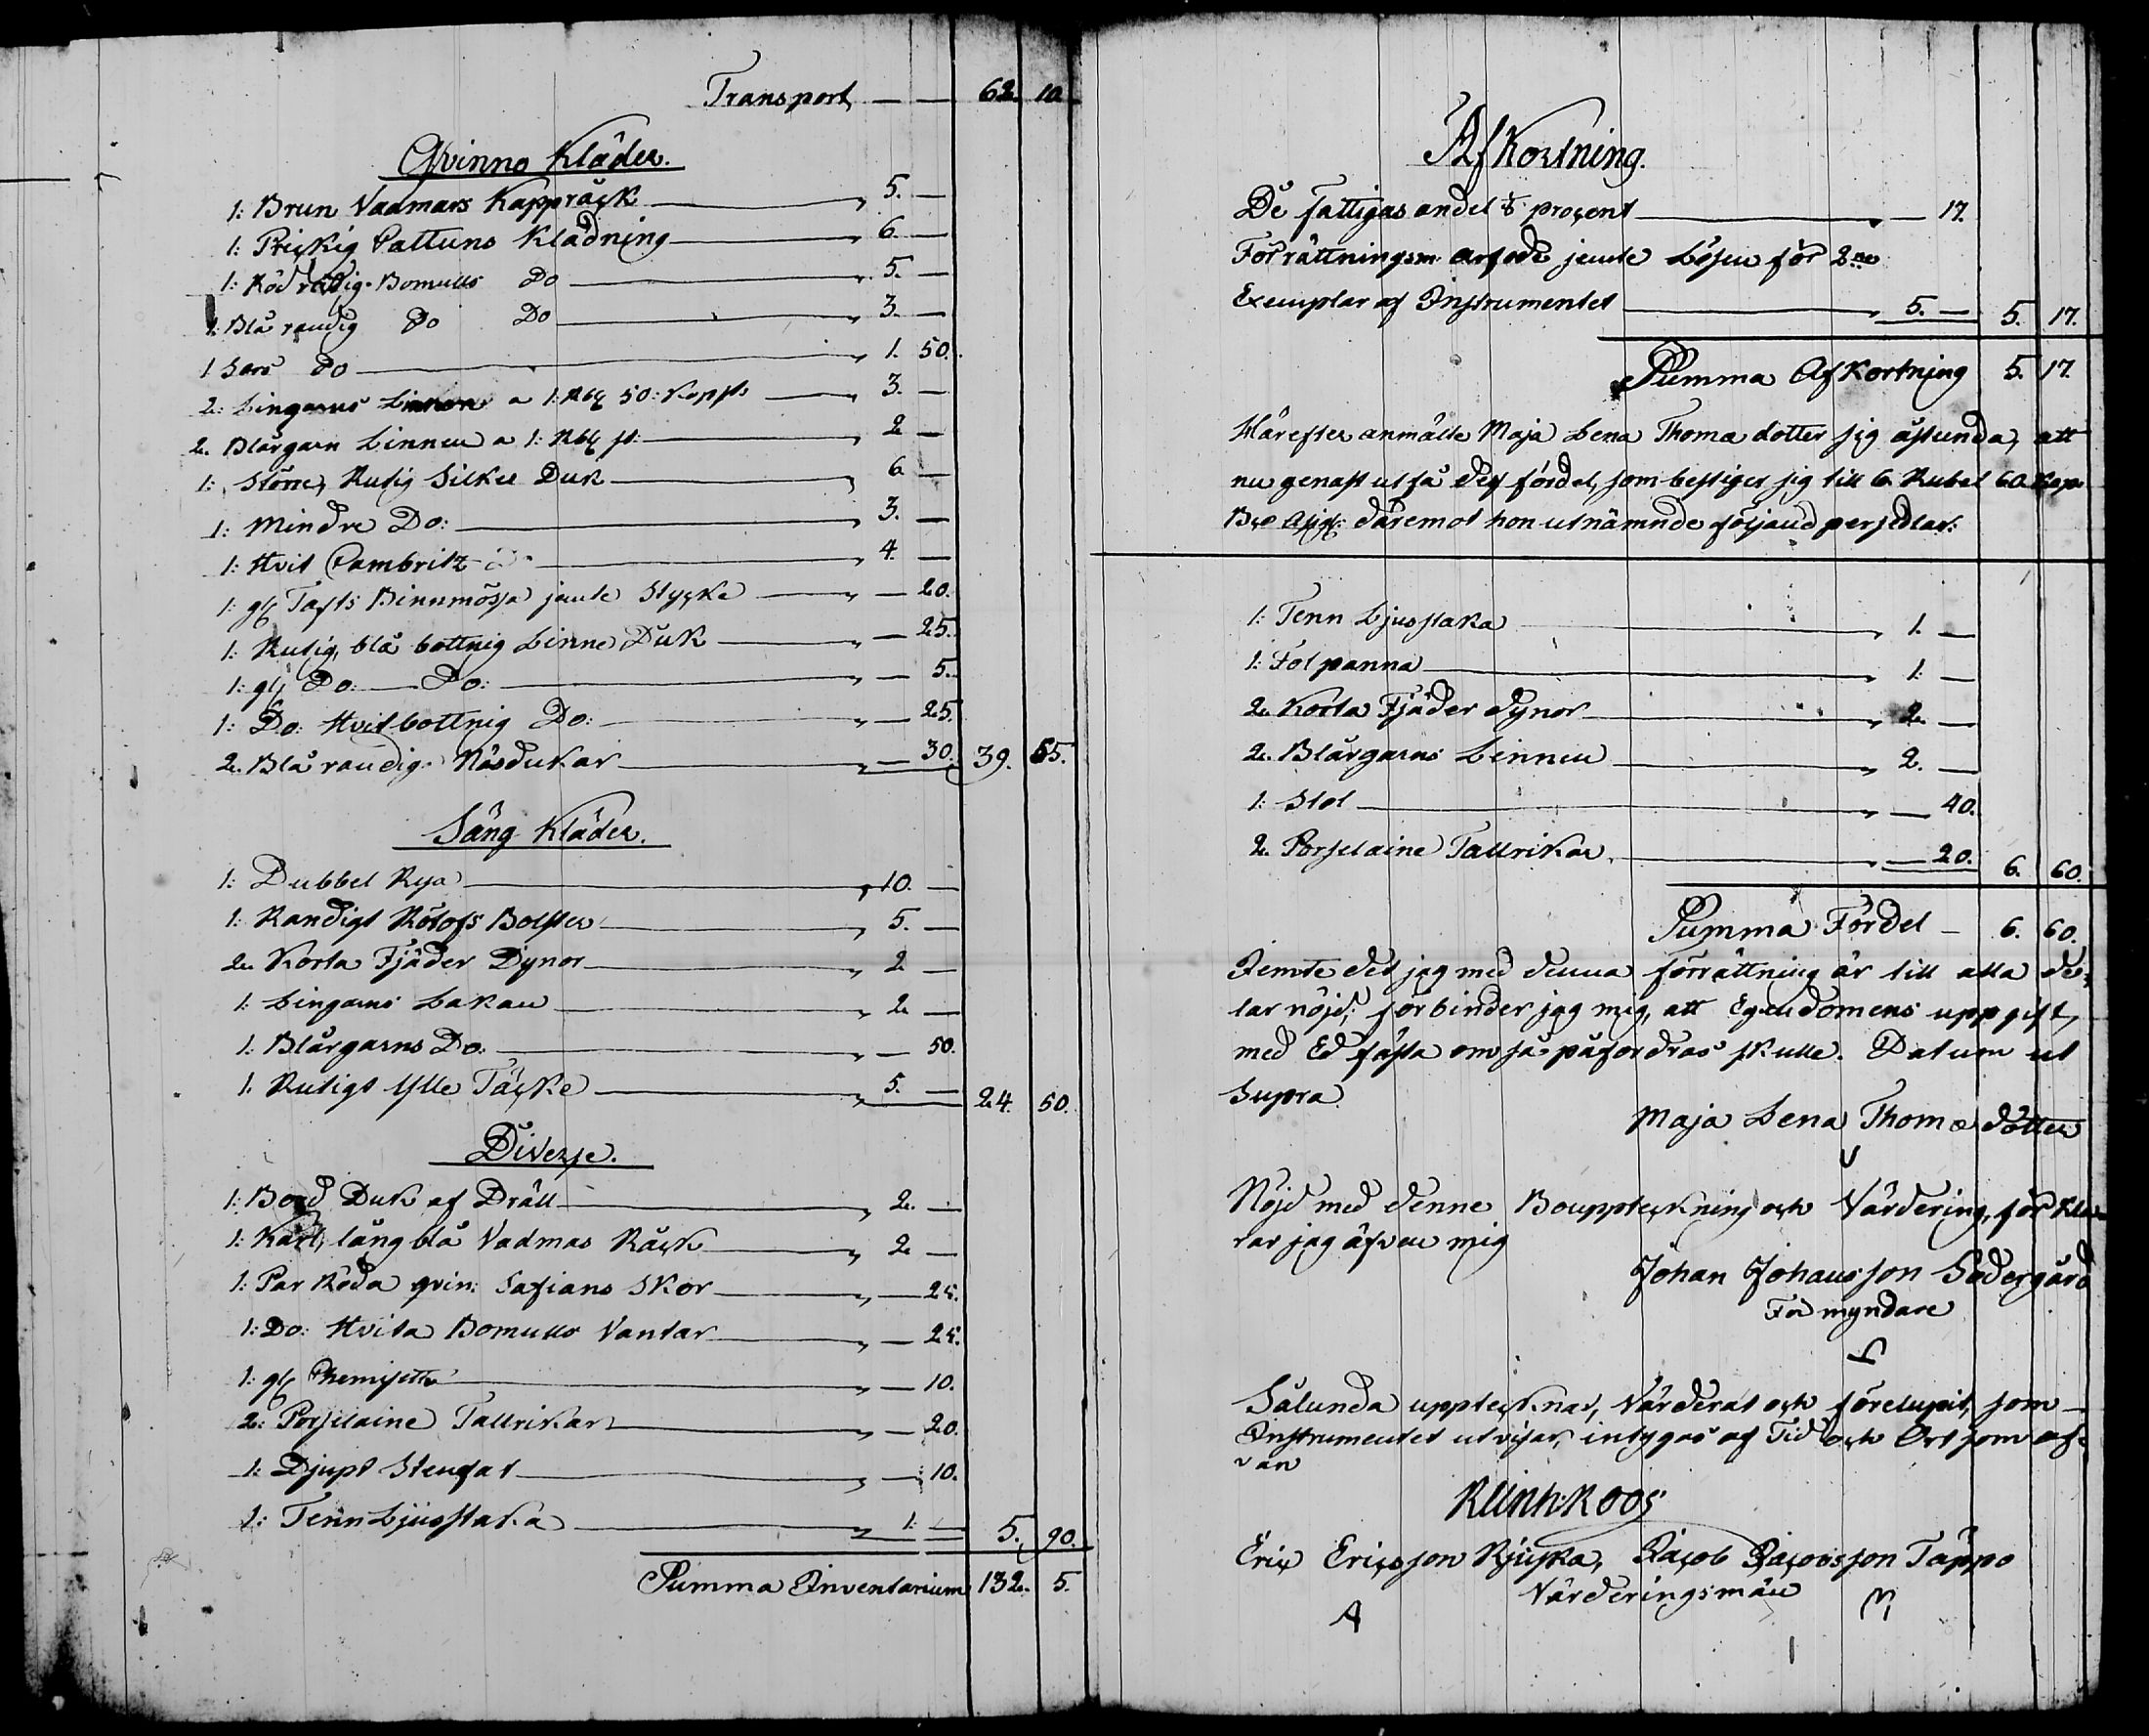 Transport — — 62. 10
Qvinno Kläder.
1: Brun Vadmars Kappräck — „ 5. —
1: Prickig Cattuns Klädning — „ 6. —
1: Röd randig Bomulls Do — „ 5. —
1: Blå randig Do Do — „ 3. —
1 Sars Do — „ 1. 50.
2: Lingarns Linnen a 1: Rbl 50: Kopp — „ 3. —
2. Blårgarn Linnen a 1: Rbl st: — „ 2 —
1: Större, Rutig Silkes Duk — „ 6. —
1: Mindre Do: — „ 3. —
1: Hvit Cambritz — „ 4. —
1: gl Tafts Binnmössa jemte Stycke — „ — 20.
1: Rutig, blå bottnig Linne Duk — „ — 25.
1: gl Do: — Do: — „ — 5.
1: Do: Hvitbottnig Do: — „ — 25.
2. Blå randig Näsdukar — „ — 30. 39. 55.
Säng Kläder.
1: Dubbel Rya — „ 10. —
1: Randigt Rötofs Bolster — „ 5. —
2. Korta Fjäder Dynor — „ 2 —
1: Lingarns Lakan — „ 2 —
1: Blårgarns Do: — „ — 50.
1: Rutigt Ylle Täcke — „ 5. — 24. 50.
Diverse.
1: Bord Duk af Dräll — „ 2. —
1: Karl, lång blå Vadmas Räck — „ 2 —
1: Par Röda qvin: Safians Skor — „ — 25.
1: Do: Hvita Bomulls Vantar — „ — 25.
1: gl Chemisette — „ — 10.
2: Porslaine Tallrikar — „ — 20.
1: Djupt Stenfat — „ — 10.
1: Tenn Ljusstaka — „ 1: — 5. 90.
Summa Inventarium 132. 5.
Afkortning.
De fattigas andel procent — „ — 17.
Förrättningsm. arfode jemte Lösen för 2ne
Exemplar af Instrumentet — „ 5. — 5. 17.
Summa Afkortning 5. 17.
Härefter anmälte Maja Lena Thomæ dotter sig åstunda, att
nu genast utfå des fördel, som bestiger sig till 6 Rubel 60 Kop:
Bco Assig: däremot hon utnämnde följand persedlar:
1: Tenn Ljusstaka — „ 1. —
1: Fotpanna — „ 1: —
2. Korta Fjäder dynor — „ 2. —
2. Blårgarns Linnen — „ 2. —
1: Stol — „ — 40.
2. Porslaine Tallrikar — „ — 20. 6. 60.
Summa Fördel — 6. 60.
Jemte det jag med denna förrättning är till alla de-
lar nöjd, förbinder jag mig, att Egendomens uppgift,
med Ed fästa om så påfordras skulle. Datum ut
Supra
Maja Lena Thomæ dotter
Nöjd med denne Bouppteckning och Värdering, för kla-
rar jag äfven mig
Johan Johansson Södergård
Förmyndare
Sålunda upptecknat, Värderat och förelupit, som
Instrumentet utvisar, intygas af Tid och Ort som of-
van
Reinh: Roos
Eric Ericsson Jacob Jacobsson Täppo
Värderingsmän
A